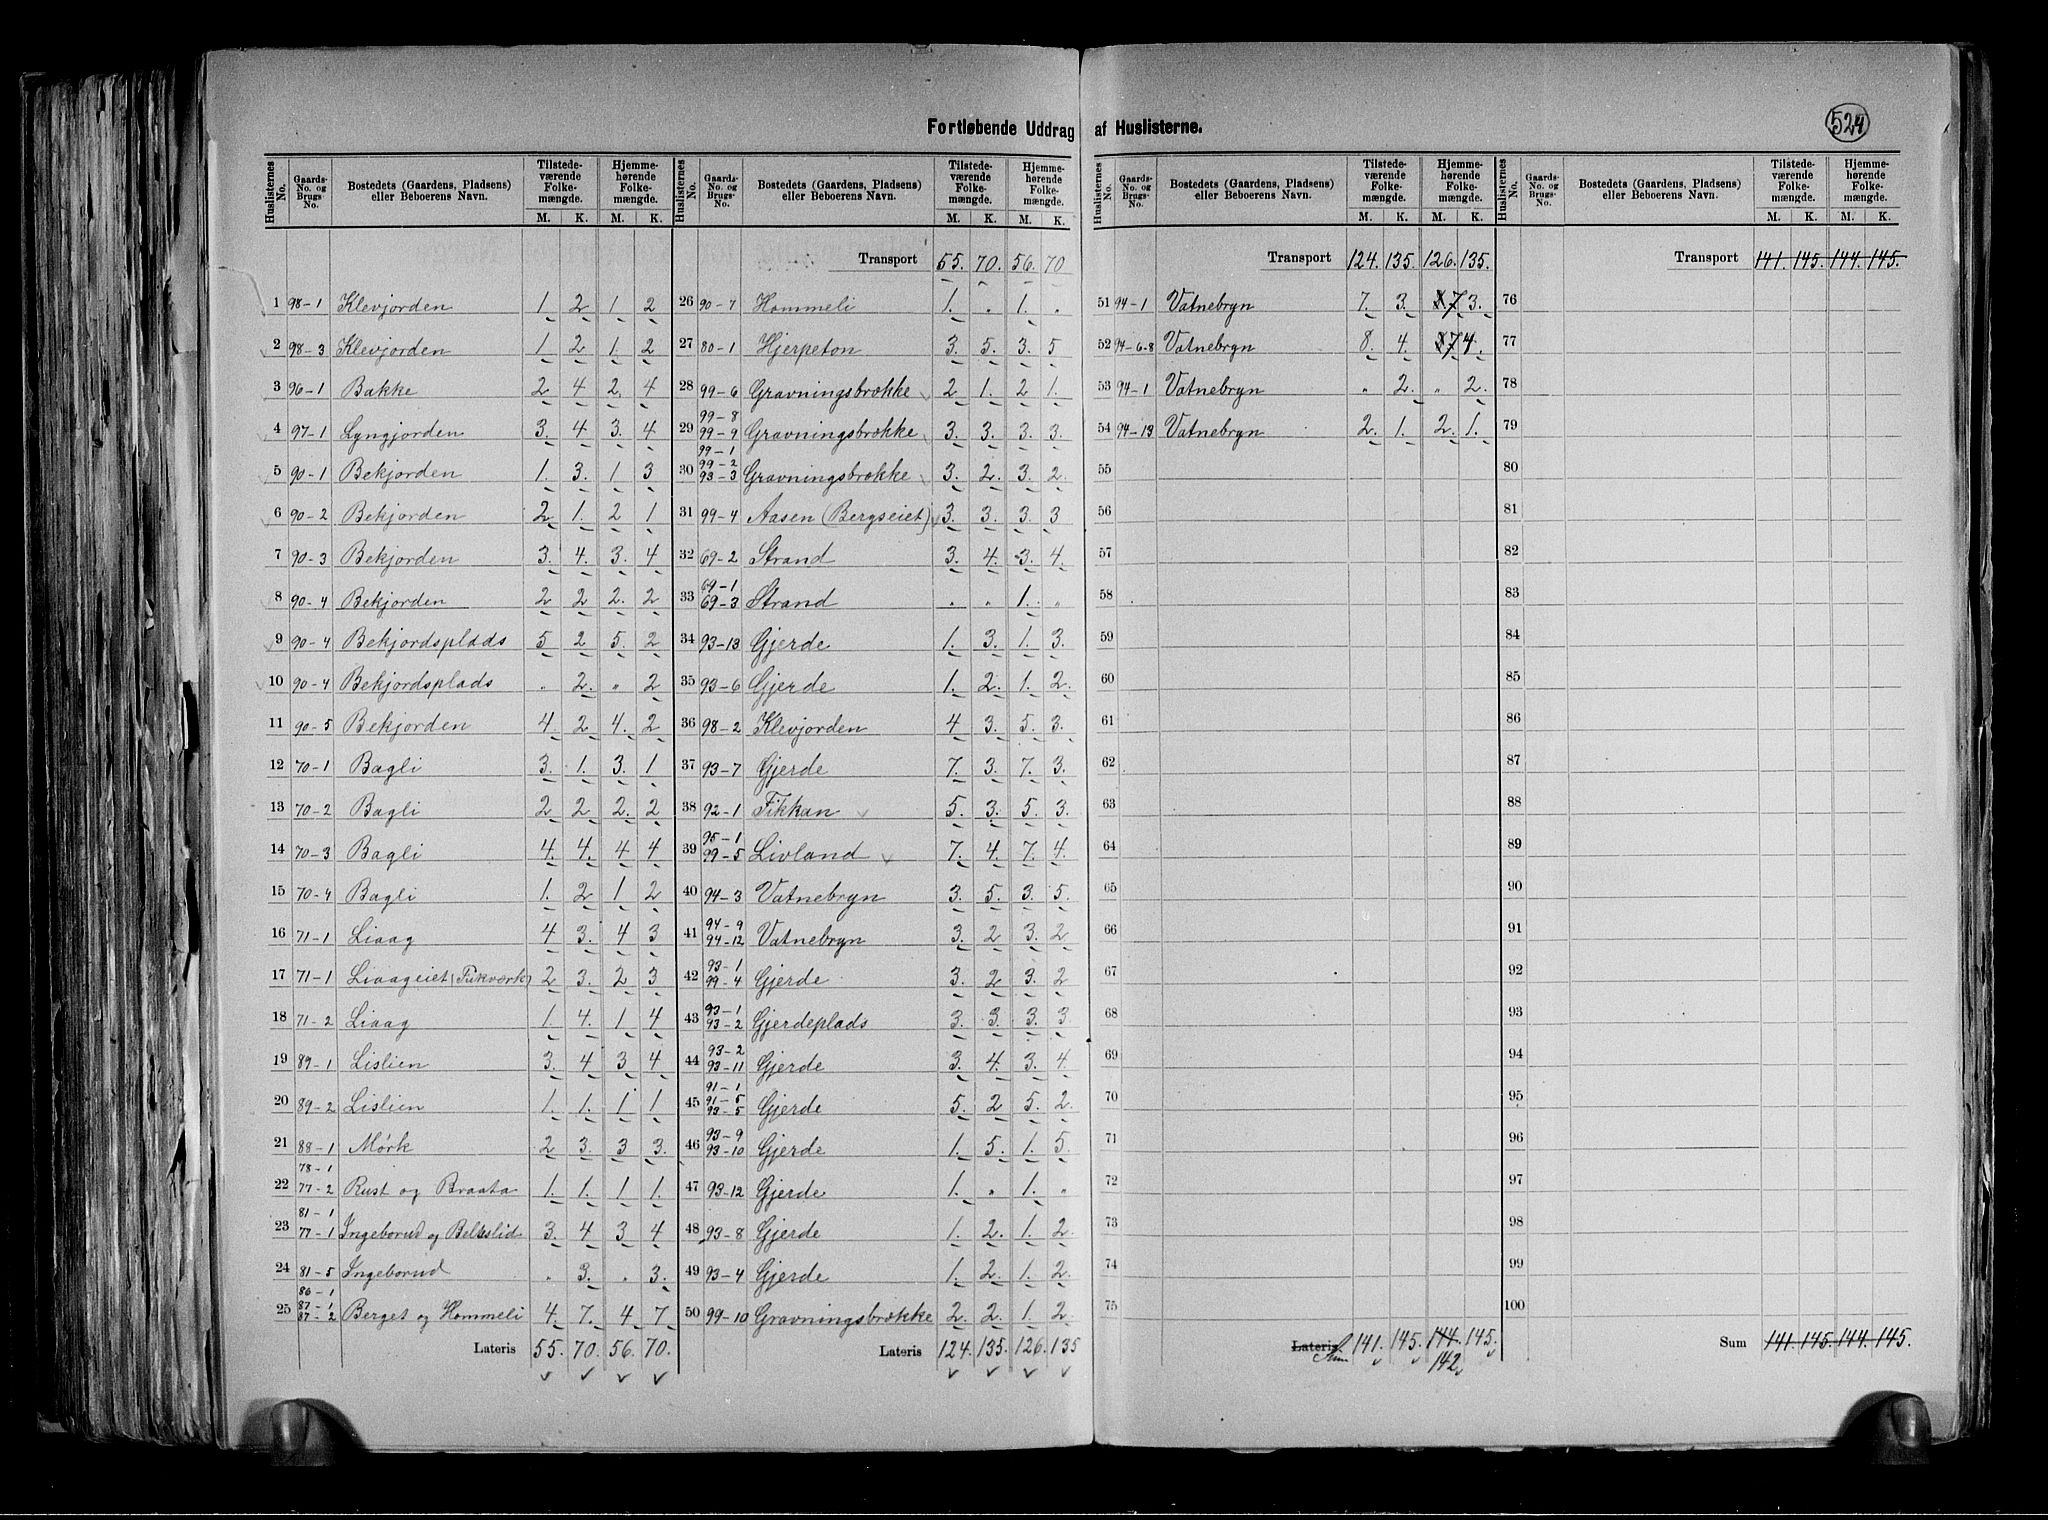 Fortløbende Uddrag af Huslisterne.
524
Huslisternes No. | Gaards-No. og Brugs-No. | Bostedets (Gaardens, Pladsens) eller Beboerens Navn. | Tilstedeværende Folkemængde. M. K. | Hjemmehørende Folkemængde. M. K.
1 98-1 Klevjorden 1. 2 1 2
2 98-3 Klevjorden 1 2. 1. 2
3 96-1 Bakke 2 4 2. 4
4 97-1 Lyngjorden 3. 4 3. 4
5 90-1 Bekjorden 1. 3. 1 3
6 90-2 Bekjorden 2 1. 2 1
7 90-3 Bekjorden 3. 4. 3. 4
8 90-4 Bekjorden 2 2 2. 2
9 90-4 Bekjordsplads 5 2 5. 2
10 90-4 Bekjordsplads " 2. " 2
11 90-5 Bekjorden 4 2 4. 2
12 70-1 Bagli 3. 1. 3. 1
13 70-2 Bagli 2 2 2. 2
14 70-3 Bagli 4. 4. 4 4
15 70-4 Bagli 1. 2 1 2
16 71-1 Liaag 4 3. 4 3
17 71-1 Liaageiet (Fikværk) 2 3. 2 3
18 71-2 Liaag 1. 4. 1 4
19 89-1 Lislien 3. 4 3 4
20 89-2 Lislien 1. 1. 1 1
21 88-1 Mørk 2 3. 3 3.
22 78-1 77-2 Rust og Braata 1. 1. 1 1.
23 81-1 77-1 Ingeborud og Bekslid 3. 4 3 4
24 81-5 Ingeborud " 3. " 3.
25 86-1 87-1 87-2 Berget og Hommeli 4. 7. 4 7
Lateris 55. 70. 56. 70.
Huslisternes No. | Gaards-No. og Brugs-No. | Bostedets (Gaardens, Pladsens) eller Beboerens Navn. | Tilstedeværende Folkemængde. M. K. | Hjemmehørende Folkemængde. M. K.
Transport 55. 70. 56. 70
26 90-7 Hommeli 1. " 1. "
27 80-1 Hjerpeton 3. 5. 3. 5
28 99-6 Gravningsbrøkke 2 1. 2 1.
29 99-8 99-9 Gravningsbrøkke 3. 3. 3. 3.
30 99-1 99-2 93-3 Gravningsbrøkke 3. 2. 3. 2.
31 99-4 Aasen (Bergseiet) 3. 3. 3. 3
32 69-2 Strand 3. 4. 3. 4.
33 69-1 69-3 Strand " " 1. "
34 93-13 Gjerde 1. 3. 1. 3.
35 93-6 Gjerde 1. 2. 1. 2.
36 98-2 Klevjorden 4 3. 5. 3.
37 93-7 Gjerde 7. 3. 7. 3.
38 92-1 Fikkan 5. 3. 5. 3.
39 95-1 99-5 Livland 7. 4. 7. 4.
40 94-3 Vatnebryn 3. 5. 3. 5.
41 94-9 94-12 Vatnebryn 3. 2 3. 2
42 93-1 99-4 Gjerde 3. 2 3. 2
43 93-1 93-2 Gjerdeplads 3. 3. 3. 3.
44 93-2 93-11 Gjerde 3. 4. 3. 4.
45 91-1 91-5 93-5 Gjerde 5. 2 5. 2.
46 93-9 93-10 Gjerde 1. 5. 1. 5.
47 93-12 Gjerde 1. " 1. "
48 93-8 Gjerde 1. 2. 1. 2
49 93-4 Gjerde 1. 2. 1. 2.
50 99-10 Gravningsbrøkke 2. 2. 1 2.
Lateris 124. 135. 126. 135
Huslisternes No. | Gaards-No. og Brugs-No. | Bostedets (Gaardens, Pladsens) eller Beboerens Navn. | Tilstedeværende Folkemængde. M. K. | Hjemmehørende Folkemængde. M. K.
Transport 124. 135. 126. 135.
51 94-1 Vatnebryn 7. 3. 7 3.
52 94-6-8 Vatnebryn 8. 4. 7 4.
53 94-1 Vatnebryn " 2. " 2.
54 94-13 Vatnebryn 2. 1. 2. 1.
55
56
57
58
59
60
61
62
63
64
65
66
67
68
69
70
71
72
73
74
75
Lateris Sum 141. 145. 144. 145.
142
Huslisternes No. | Gaards-No. og Brugs-No. | Bostedets (Gaardens, Pladsens) eller Beboerens Navn. | Tilstedeværende Folkemængde. M. K. | Hjemmehørende Folkemængde. M. K.
Transport 141. 145. 144. 145.
76
77
78
79
80
81
82
83
84
85
86
87
88
89
90
91
92
93
94
95
96
97
98
99
100
Sum 141. 145. 144. 145.